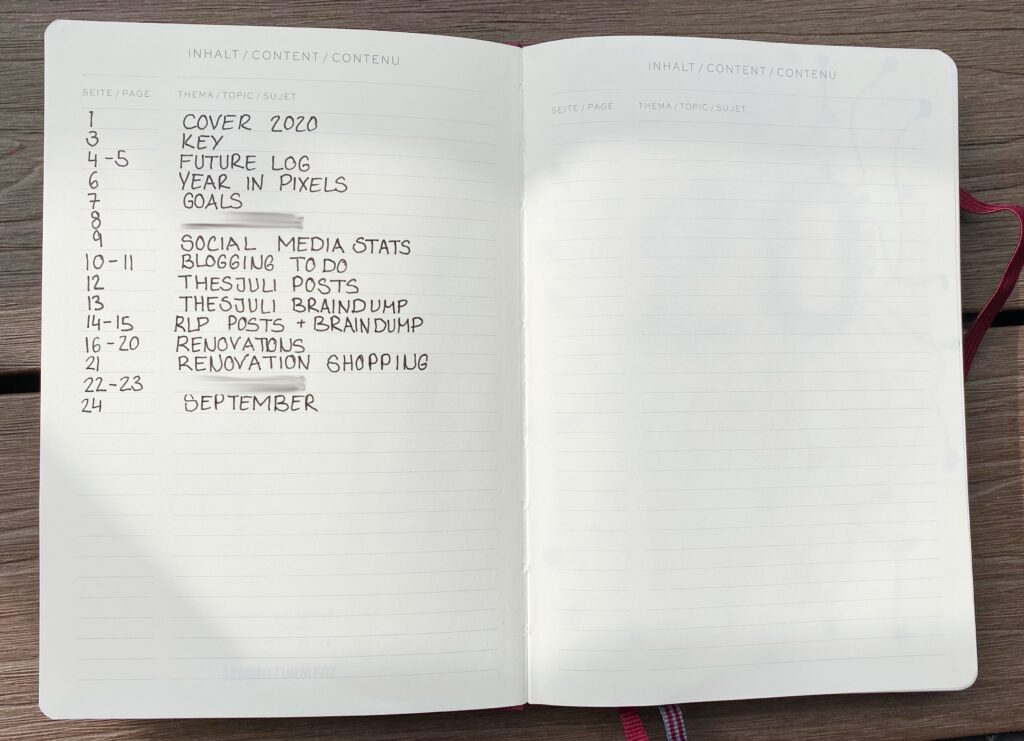 INHALT / CONTENT / CONTENU
SEITE / PAGE THEMA / TOPIC / SUJET
1 COVER 2020
3 KEY
4-5 FUTURE LOG
6 YEAR IN PIXELS
7 GOALS
8
9 SOCIAL MEDIA STATS
10-11 BLOGGING TO DO
12 THESJULI POSTS
13 THESJULI BRAINDUMP
14-15 RLP POSTS + BRAINDUMP
16-20 RENOVATIONS
21 RENOVATION SHOPPING
22-23
24 SEPTEMBER
INHALT / CONTENT / CONTENU
SEITE / PAGE THEMA / TOPIC / SUJET